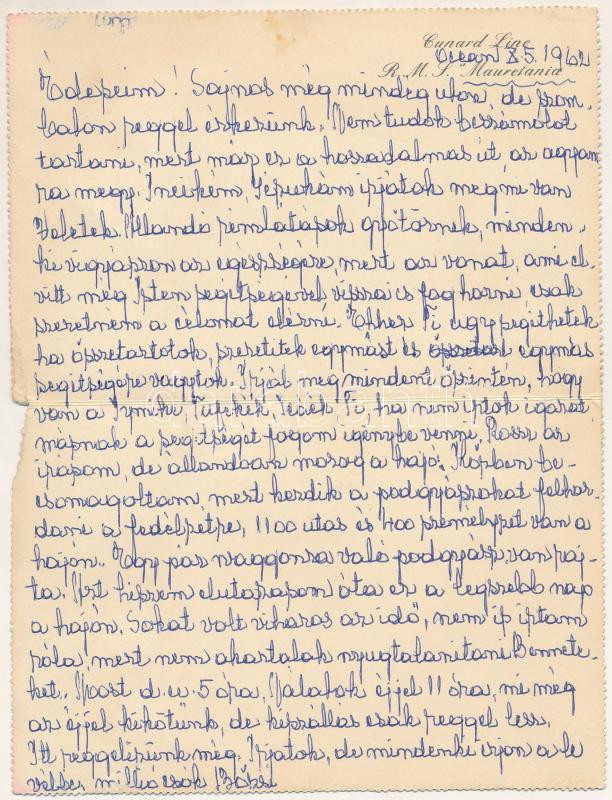 Cunard Line
R. M. S. "Mauretania"
Ocean X 5. 1962
Édeseim! Sajnos még mindég uton, de szom-
baton reggel érkezünk. Nem tudok beszámolót
tartani, mert már ez a hosszadalmas út az agyam-
ra megy. Írjátok meg mi van
Veletek. Állandó rémlátások gyötörnek, minden-
ki vigyázzon az egészségére, mert az vonat, ami el-
vitt még Isten segítségével vissza is fog hozni, csak
szeretném a célomat elérni. Ehhez Ti úgy segíthetek
ha összetartotok, szeretitek egymást és egymás
segítségére vagytok. Írjál meg mindent őszintén, hogy
van a Ti, ha nem írtok igazat
másnak a segítségét fogom igénybe venni. Rossz az
írásom, de állandóan mozog a hajó. Közben be-
csomagoltam, mert kezdik a podgyászokat felhor-
dani a fedélzetre, 1100 utas és 400 személyzet van a
hajón. Egy pár waggonra való podgyász van raj-
ta. Azt hiszem elutazásom óta ez a legszebb nap
a hajón. Sokat volt viharos az idő, nem is írtam
róla, mert nem akartalak nyugtalanítani Bennete-
ket. Most d.u. 5 óra, Nálatok éjjel 11 óra, mi még
az éjjel kikötünk, de kiszállás csak reggel lesz.
Itt reggelizünk még. Írjatok, de mindenki írjon a le
vélbe, millió csók Bözsi
darabanth